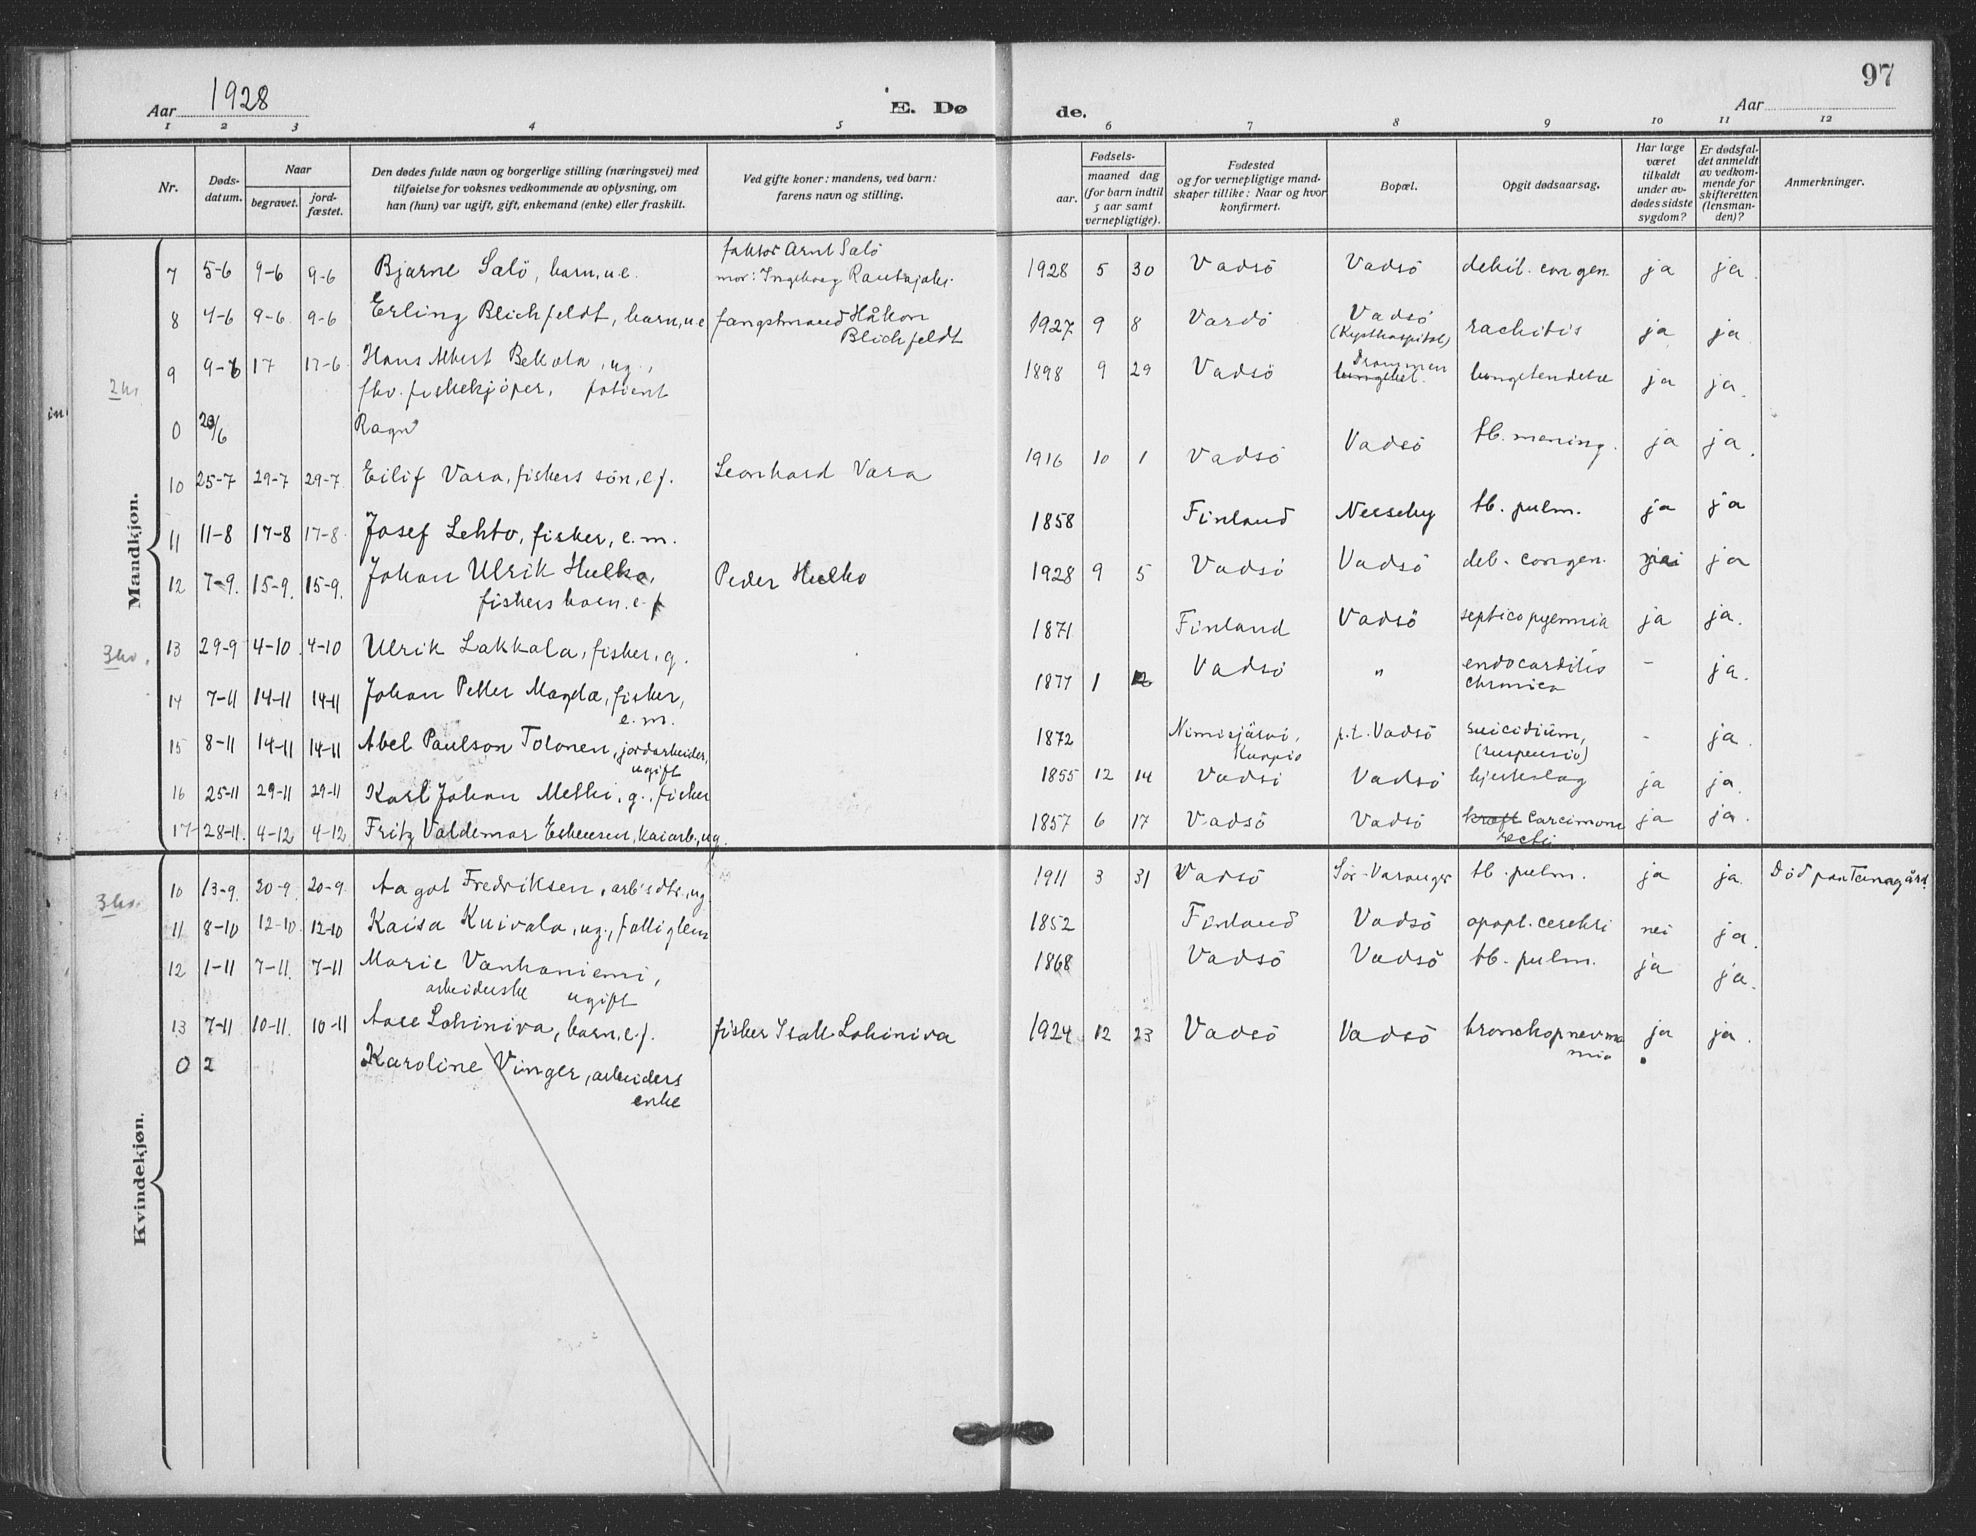 97
Aar 1928
E. Døde.
Aar
1 2 3 4 5 6 7 8 9 10 11 12
Nr.
Døds-datum.
Naar
begravet.
jord-fæstet.
Den dødes fulde navn og borgerlige stilling (næringsvei) med
tilføielse for voksnes vedkommende av oplysning, om
han (hun) var ugift, gift, enkemand (enke) eller fraskilt.
Ved gifte koner: mandens, ved barn:
farens navn og stilling.
Fødsels-
aar.
maaned dag
(for barn indtil
5 aar samt
vernepligtige).
Fødested
og for vernepligtige mand-
skaper tillike: Naar og hvor
konfirmert.
Bopæl.
Opgit dødsaarsag.
Har læge
været
tilkaldt
under av-
dødes sidste
sygdom?
Er dødsfal-
det anmeldt
av vedkom-
mende for
skifteretten
(lensman-
den)?
Anmerkninger.
Mandkjøn.
faktor Arnt Salö
7 5-6 9-6 9-6 Bjarne Salö, barn, u.e. mor: Ingeborg 1928 5 30 Vadsö Vadsö debil. congen. ja ja.
8 4-6 9-6 9-6 Erling Blichfeldt, barn, u.e. fangstmand Håkon Blichfeldt 1927 9 8 Vardö Vadsö (Kysthospital) rachitis ja ja
9 9-6 17 17-6 Hans Albert Bekola, ug., 1898 9 29 Vadsö Drammen ja ja.
fhv. fiskekjöper, patient
0 20/6 Ragn
10 25-7 29-7 29-7 Eilif Vara, fiskers sön, e.f. Leonhard Vara 1916 10 1 Vadsö Vadsö tb. mening. ja ja.
11 11-8 17-8 17-8 Josef Lehto, fisker, e.m. 1858 Finland Nesseby tb. pulm. ja ja
12 7-9. 15-9. 15-9. Johan Ulrik Hulko, Peder Hulko 1928 9 5 Vadsö Vadsö deb. congen. nei ja
fiskers barn. e.f.
13 29-9 4-10. 4-10 Ulrik Lakkala, fisker, g. 1871 Finland Vadsö septicopyemia ja ja.
14 7-11 14-11 14-11 Johan Petter Magda, fisker, e.m. 1877 1 Vadsö " endocarditis chronica - ja.
15 8-11 14-11 14-11 Abel Paulson Tolonen, jordarbeider, ugift 1872 Nimisjärvi, Kuopio p.t. Vadsö suicidium, (suspensio) - ja.
16 25-11 29-11 29-11 Karl Johan Methi, g., fisker 1855 12 14 Vadsö Vadsö hjerteslag ja ja.
17 28-11. 4-12 4-12 Fritz Valdemar Esbensen, kaiarb., ug. 1857 6 17 Vadsö Vadsö kræft carcimoma recti ja ja.
Kvindekjøn.
10 13-9. 20-9. 20-9. Aagot Fredriksen, arb's dtr., ug 1911 3 31 Vadsö Sör-Varanger tb. pulm. ja ja. Död paa Tanagård.
11 8-10 12-10. 12-10 Kaisa Kuivala, ug., fattiglem 1852 Finland Vadsö apopl. cerebri nei ja.
12 1-11 7-11. 7-11 Marie Vanhaniemi, 1868 Vadsö Vadsö tb. pulm. ja ja.
arbeiderske ugift
13 7-11 10-11. 10-11 Aase Lohiniva, barn, e.f. fisker Isak Lohiniva 1924 12 23 Vadsö Vadsö bronchopneumonia ja ja.
0 2 Karoline Vinger, arbeiders
enke